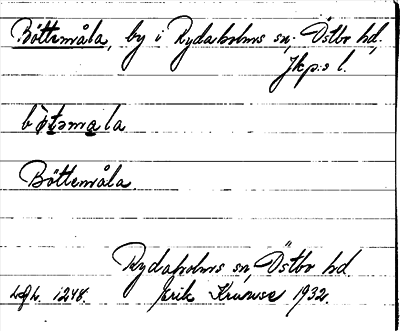 Böttemåla, by i Rydaholms sn, Östbo hd,
Jkp:s l.
bòtəmala
Böttemåla
Rydaholms sn, Östbo hd
Erik Kruuse 1932.